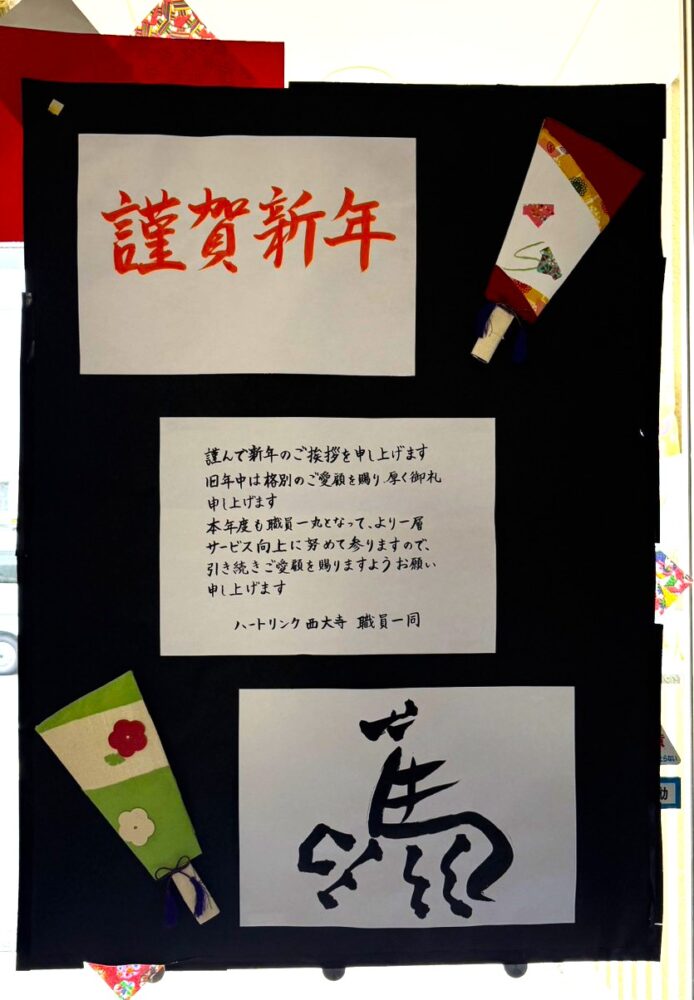 謹賀新年
謹んで新年のご挨拶を申し上げます
旧年中は格別のご愛顧を賜り、厚く御礼
申し上げます
本年度も職員一丸となって、より一層
サービス向上に努めて参りますので、
引き続きご愛顧を賜りますようお願い
申し上げます
ハートリンク西大寺 職員一同
馬